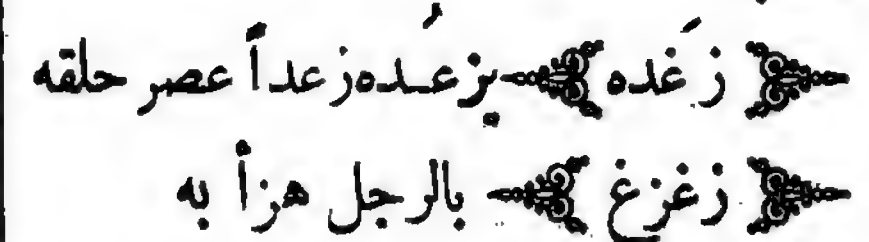 ﴿ زَغده ﴾ يزعُـده زعداً عصر حلقه
﴿ زغزغ ﴾ بالرجل هزأ به